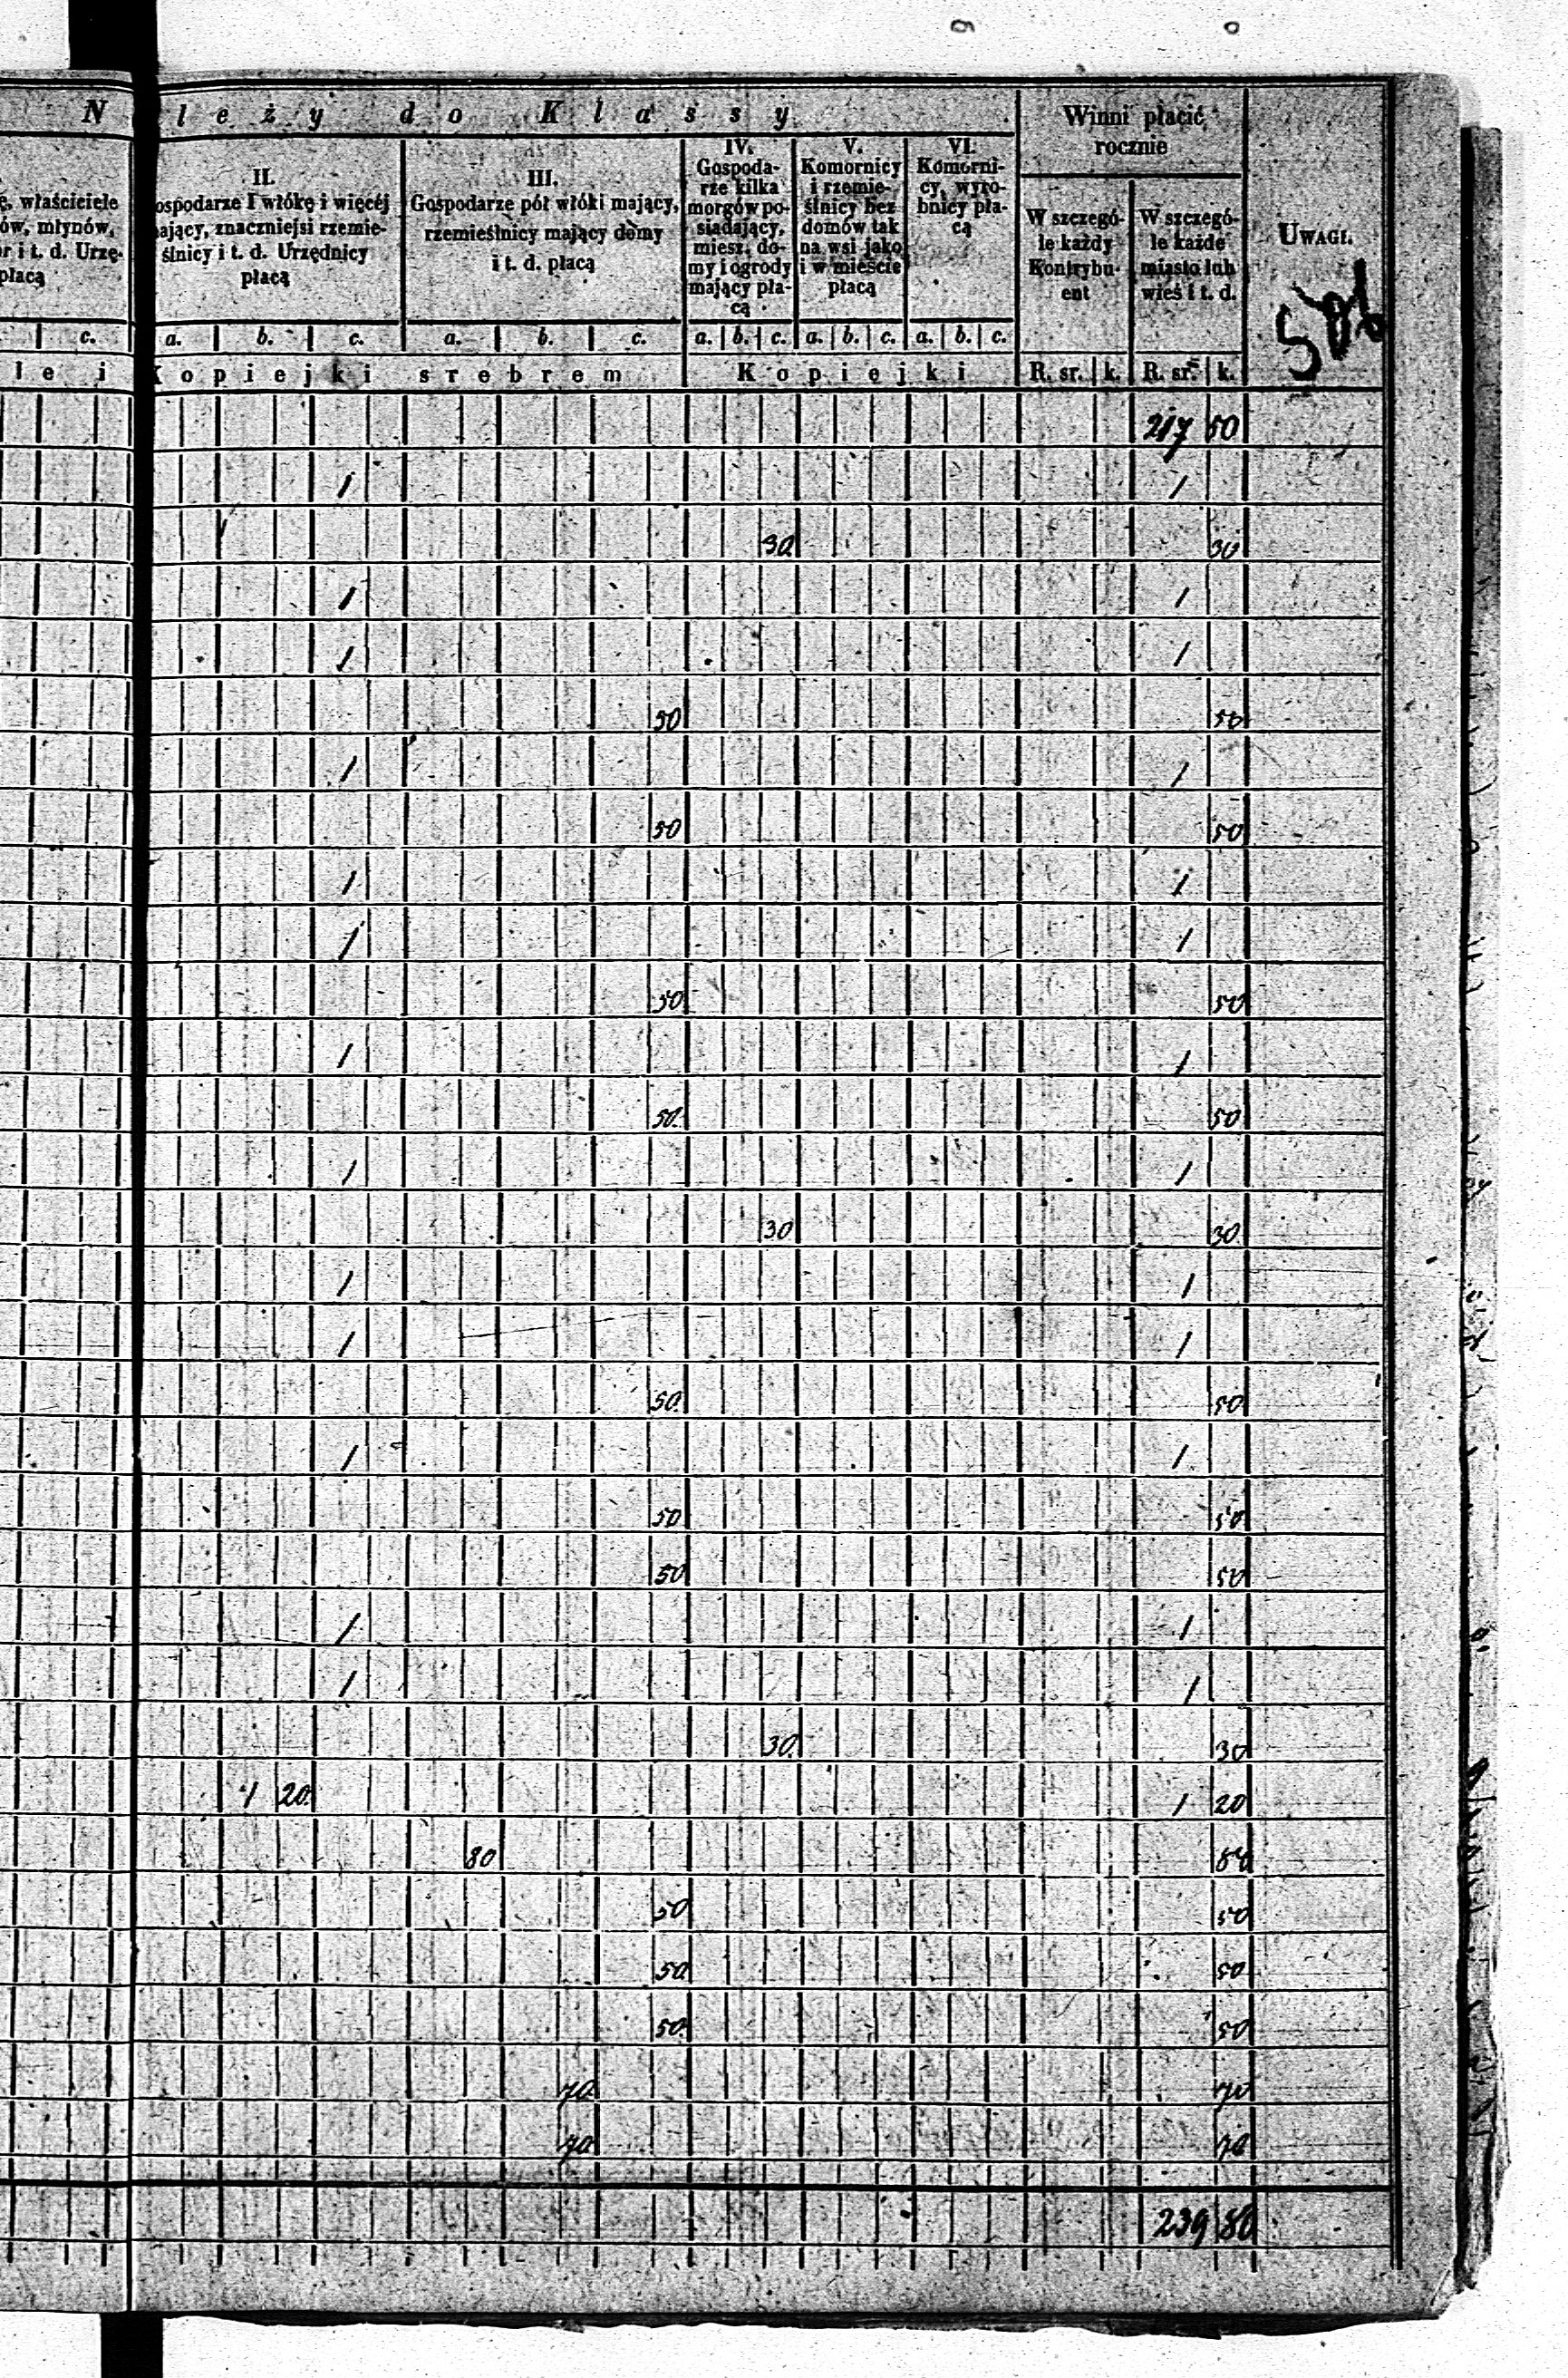 N leży do Klassy
Winni płacić rocznie
ę, właściciele
ów, młynów,
r i t. d. Urzę-
płacą
II.
ospodarze I włókę i więcéj
ający, znaczniejsi rzemie-
ślnicy i t. d. Urzędnicy
płacą
III.
Gospodarze pół włóki mający,
rzemieślnicy mający domy
i t. d. płacą
IV.
Gospoda-
rze kilka
morgów po-
siadający,
miesz. do-
my i ogrody
mający pła-
cą
V.
Komornicy
i rzemie-
ślnicy bez
domów tak
na wsi jako
i w mieście
płacą
VI.
Komorni-
cy, wyro-
bnicy pła-
cą
W szczegó-
le każdy
Kontrybu-
ent
W szczegó-
le każde
miasto lub
wieś i t. d.
UWAGI.
c. a. b. c. a. b. c. a. b. c. a. b. c. a. b. c.
le i Kopiejki srebrem Kopiejki R. sr. k. R. sr. k.
217 50
1 1
30 30
1 1
1 1
50 50
1 1
50 50
1 1
1 1
50 50
1 1
50 50
1 1
30 30
1 1
1 1
50 50
1 1
50 50
50 50
1 1
1 1
30 30
1 20 1 20
80 80
50 50
50 50
50 50
70 70
70 70
239 80